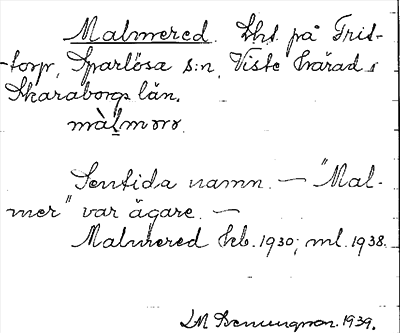 Malmered. Lht. på Frid-
torp, Sparlösa s:n, Viste härad,
Skaraborgs län.
màlmərə.
Sentida namn. — "Mal-
mer" var ägare. —
Malmered hb. 1930; ml. 1938.
LM Bennungson. 1939.